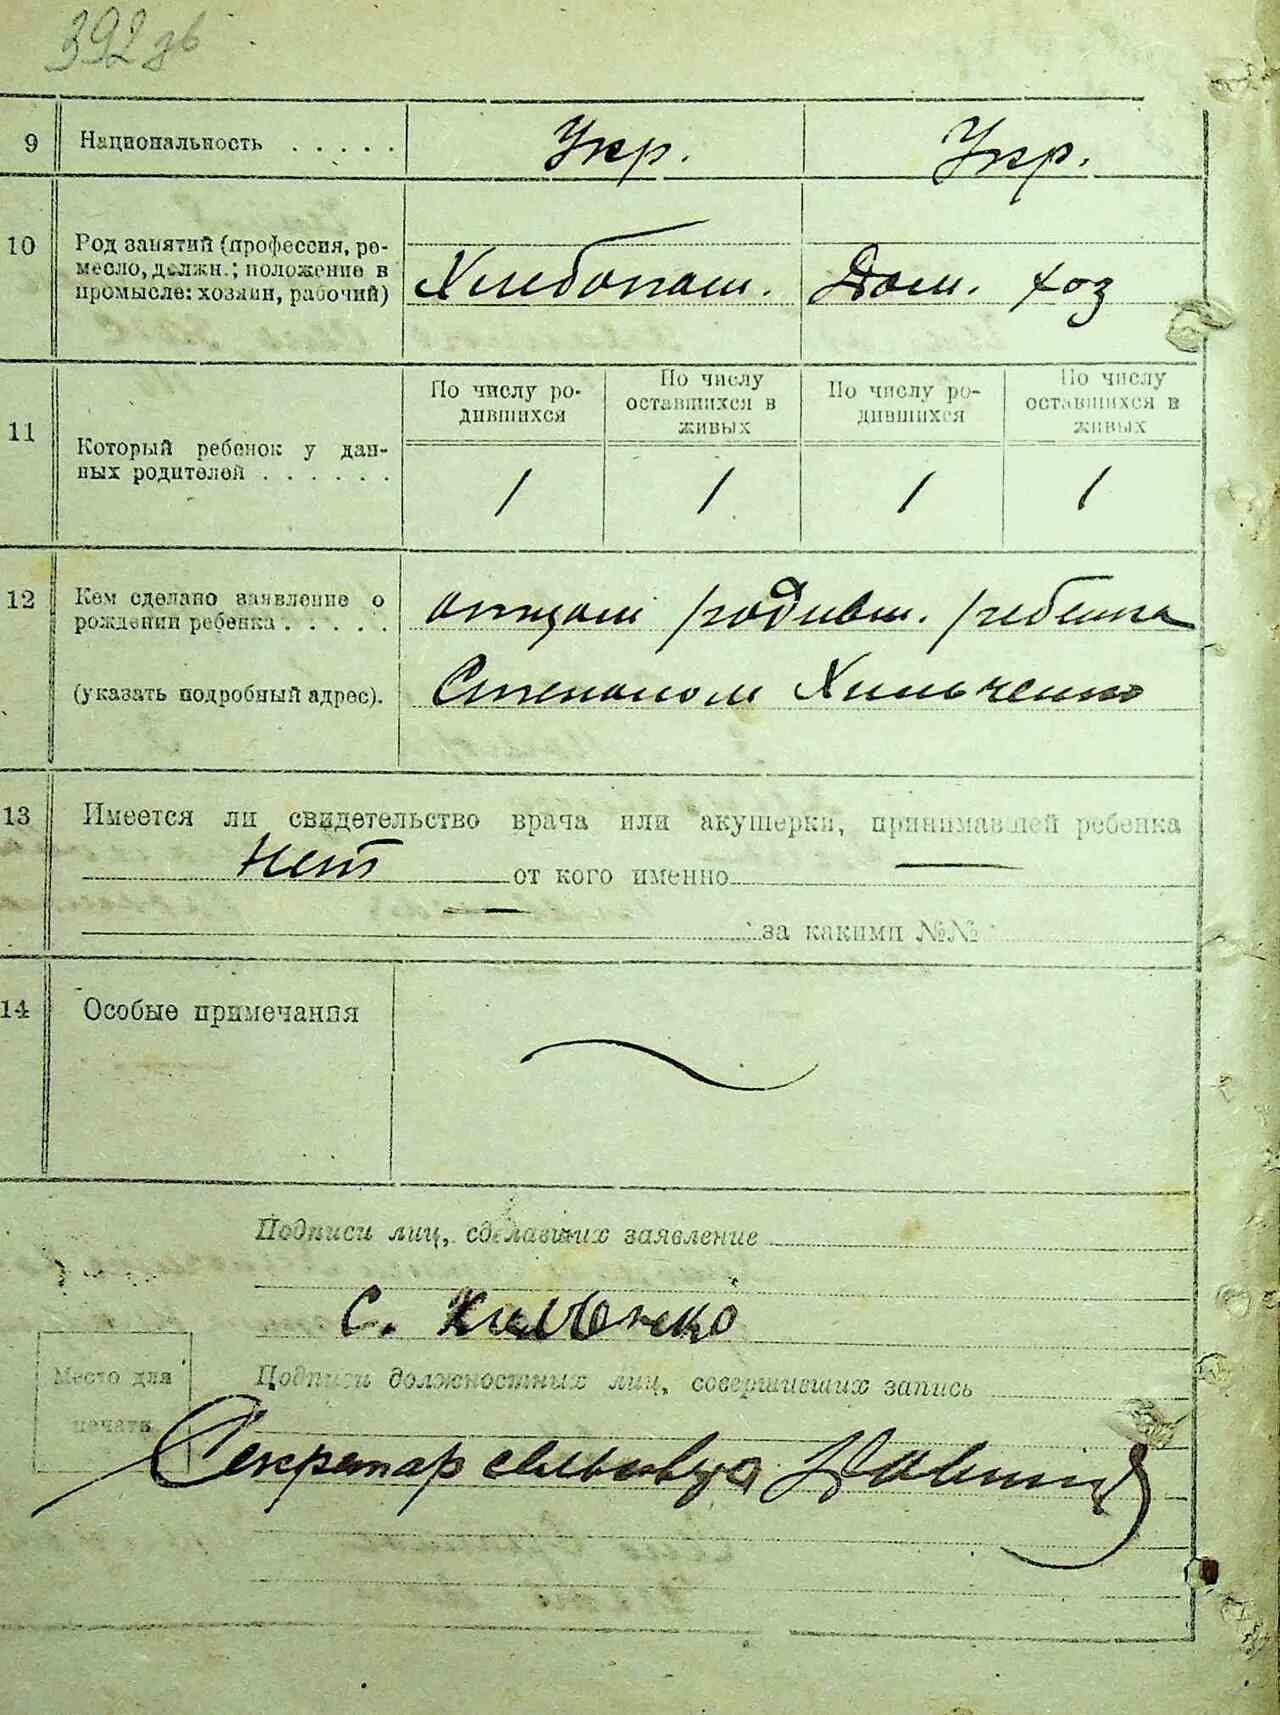 392 зв
9 Национальность . . . . . Укр. Укр.
10 Род занятий (профессия, ре-
месло, должн.; положение в
промысле: хозяин, рабочий) Хлебопаш. Дом. хоз
11 Который ребенок у дан-
ных родителей . . . . . .
По числу ро-
дившихся
По числу
оставшихся в
живых
По числу ро-
дившихся
По числу
оставшихся в
живых
1 1 1 1
12 Кем сделано заявление о
рождении ребенка . . . . .
(указать подробный адрес).
отцом родивш. ребенка
Степаном Хильченко
13 Имеется ли свидетельство врача или акушерки, принимавшей ребенка
Нет от кого именно —
— за какими №№
14 Особые примечания
Подписи лиц, сделавших заявление
С. Хильченко
Место для
печати
Подписи должностных лиц, совершивших запись
Секретар